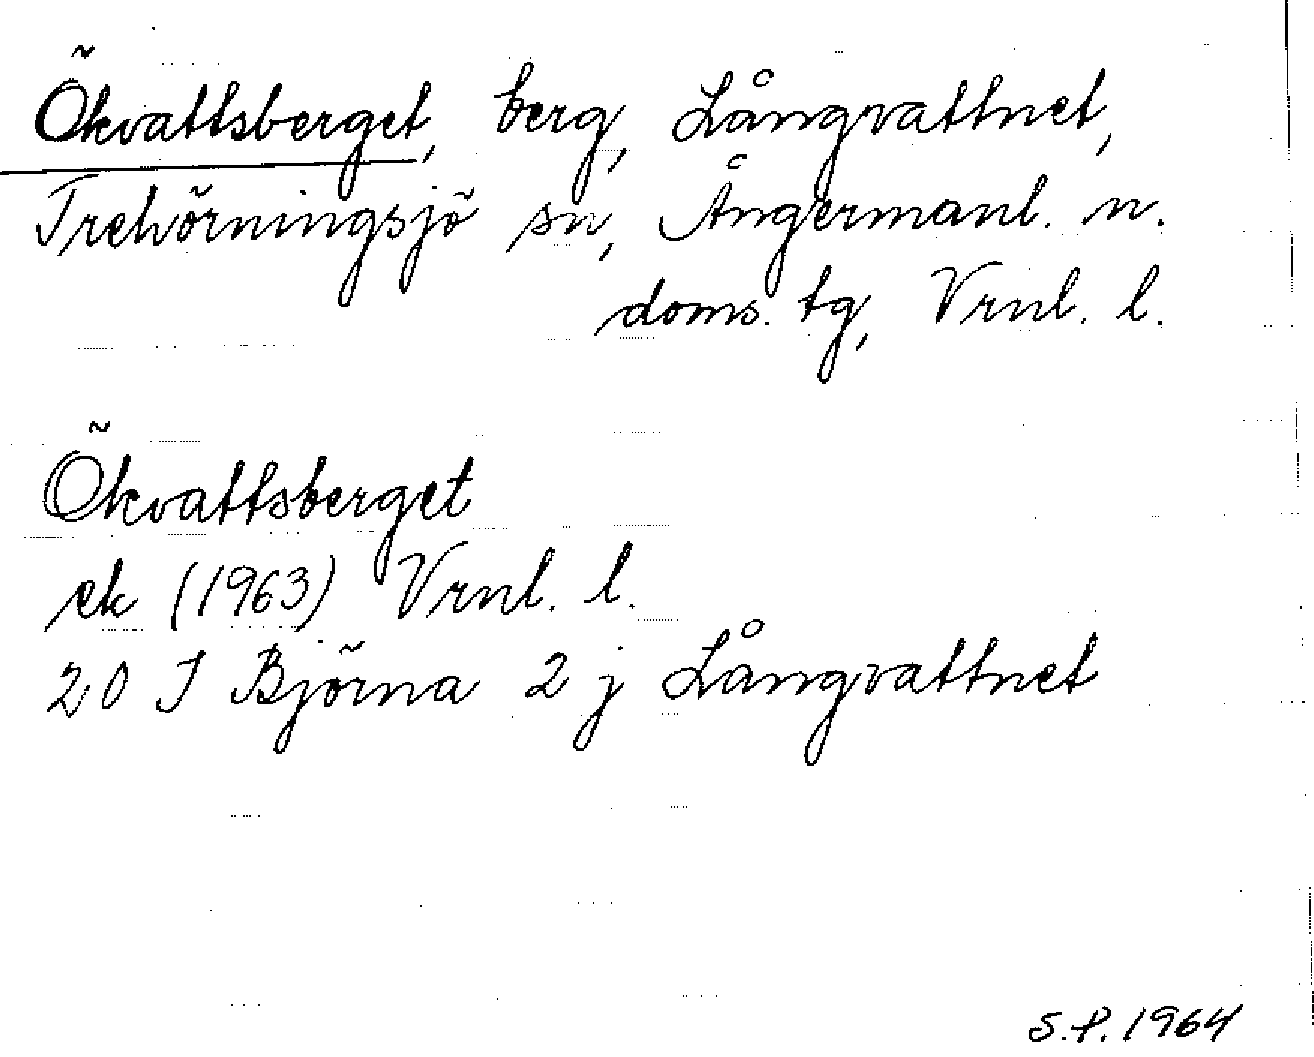 Ökvattsberget, berg, Långvattnet,
Trehörningsjö sn, Ångermanl. n.
doms. tg, Vrnl. l.
Ökvattsberget
ek (1963) Vrnl. l.
20 J Björna 2 j Långvattnet
S.P. 1964